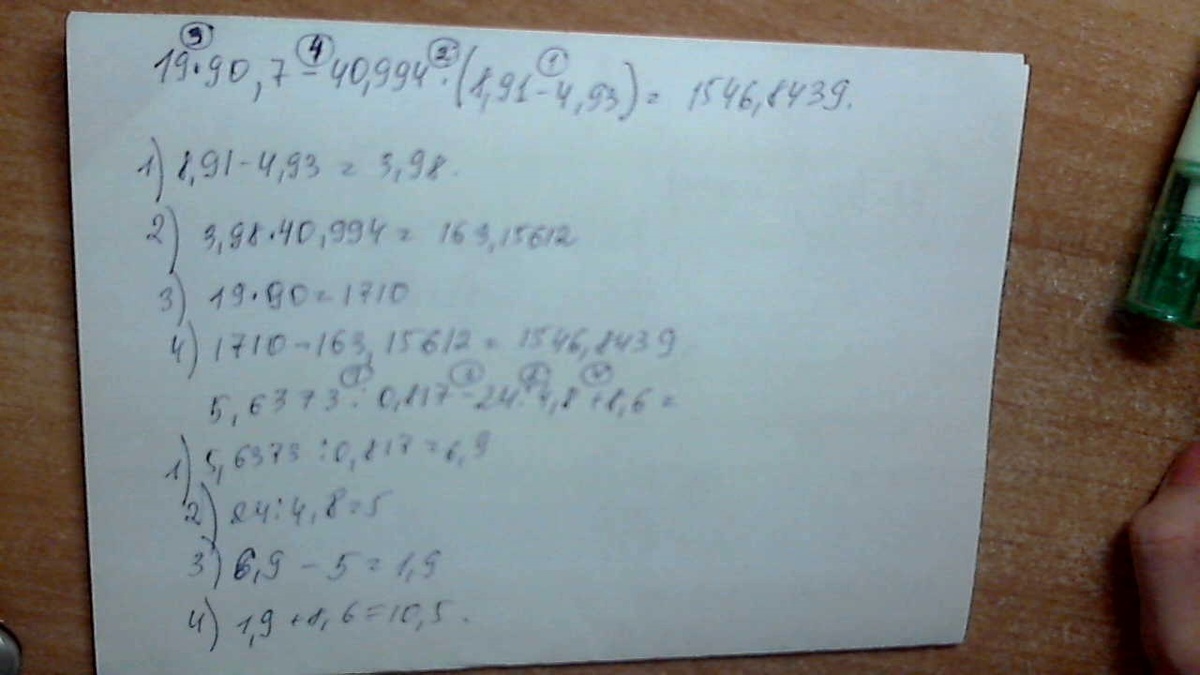 19·90,7-40,994·(8,91-4,93)= 1546,8439.
1) 8,91-4,93 = 3,98.
2) 3,98·40,994= 163,15612
3) 19·90=1710
4) 1710-163,15612= 1546,8439
5,6373:0,817-24:4,8+8,6=
1) 5,6373:0,817=6,9
2) 24:4,8=5
3) 6,9-5=1,9
4) 1,9+8,6=10,5.